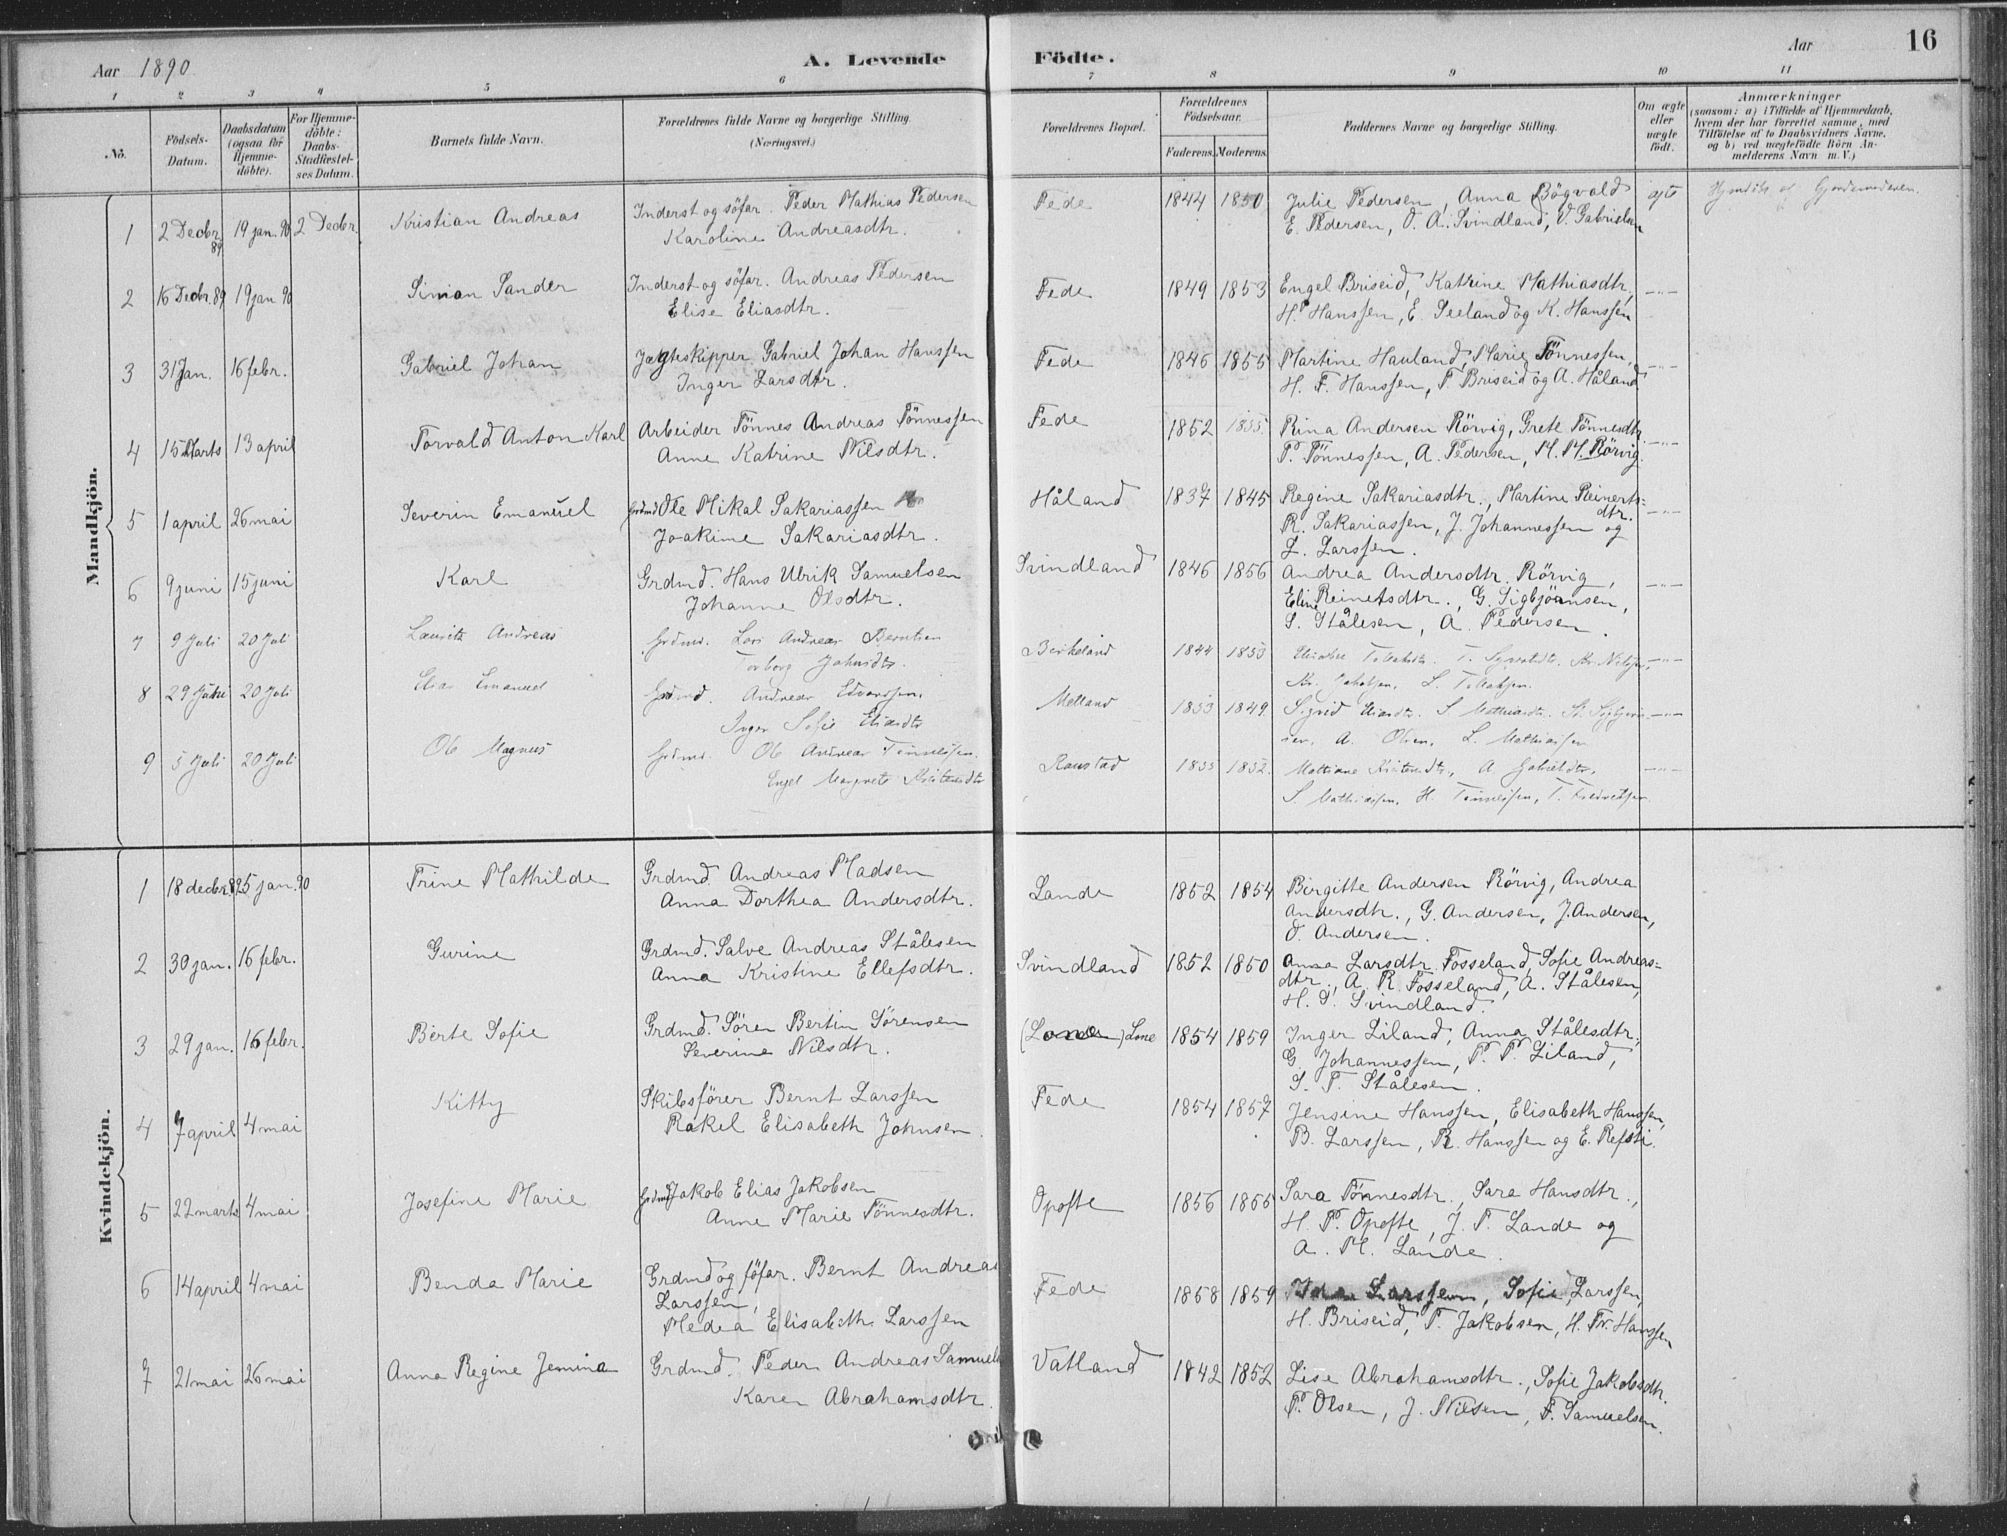 Aar 1890
A. Levende
Födte.
Aar
16
1 2 3 4 5 6 7 8 9 10 11
No.
Födsels-Datum.
Daabsdatum (ogsaa for Hjemmedöbte).
For Hjemmedöbte: Daabs-Stadfæstelses Datum.
Barnets fulde Navn.
Forældrenes fulde Navne og borgerlige Stilling.
(Næringsvei.)
Forældrenes Bopæl.
Forældrenes Födselsaar.
Faderens. Moderens.
Faddernes Navne og borgerlige Stilling.
Om ægte eller uægte födt.
Anmærkninger
(saasom: a) i Tilfælde af Hjemmedaab, hvem der har forrettet samme, med Tilföielse af to Daabsvidners Navne, og b) ved uægtefödte Börn Anmelderens Navn m. V.)
Mandkjön.
1 2 Decbr 89 19 jan. 90 2 Decbr. Kristian Andreas Inderst og söfar. Peder Mathias Pedersen Fede 1844 1850 Julie Pedersen, Anna Bögvald
Karoline Andreasdtr. E. Pedersen, O. A. Svindland, O. Gabrielsen
2 16 Decbr. 89 19 jan 90 Simon Sander Inderst og söfar. Andreas Pedersen Fede 1849 1853 Engel Briseid, Katrine Mathiasdtr, -"-
Elise Eliasdtr. H. Hanssen, E. Seeland og K. Hanssen
3 31 Jan. 16 febr. Gabriel Johan Jægteskipper Gabriel Johan Hanssen Fede 1846 1855 Martine Hauland, Marie Tönnessen, -"-
Inger Larsdtr. H. F. Hanssen, T. Briseid og A. Håland
4 15 Marts 13 april Torvald Anton Karl Arbeider Tönnes Andreas Tönnessen Fede 1852 1855 Rina Andersen Rörvig, Grete Tönnesdtr. -"-
Anne Katrine Nilsdtr. P. Tönnessen, A. Pedersen, M. M. Rörvig.
5 1 april 26 mai Severin Emanuel Grdmd Ole Mikal Sakariassen Håland 1837 1845 Regine Sakariasdtr., Martine Reinerts= -"-
dtr.
Joakime Sakariasdtr. R. Sakariassen, J. Johannessen og
L. Larssen.
6 9 juni 15 juni Karl Grdmd. Hans Ulrik Samuelsen Svindland 1846 1856 Andrea Andersdtr. Rörvig, -"-
Johanne Olsdtr. Eline Reinertsdtr., G. Sigbjörnsen,
S. Stålesen, A. Pedersen.
7 9 Juli 20 Juli Lauritz Andreas Grdmd. Lars Andreas Berntsen Birkeland 1844 1853 -"-
Torborg
8 29 Juni 20 Juli Elias Emanuel Grdmd. Andreas Edvardsen. Melland 1853 1849 Sigrid Eliasdtr. S. Mathiasdtr. -"-
Inger Sofie Eliasdtr A. Olsen, L. Mathiassen
9 5 Juli 20 Juli Ole Magnus Grdmd. Ole Andreas Tönnessen. Raustad 1855 1852. A. Gabrielsdtr. -"-
Engel Margrete S. Mathiassen, H. Tönnessen, T. Fredriksen
Kvindekjön.
1 18 decbr. 89 25 jan. 90 Trine Mathilde Grdmd. Andreas Madsen Lande 1852 1854 Birgitte Andersen Rörvig, Andrea
Anna Dorthea Andersdtr. Andersdtr., G. Andersen, J. Andersen,
O. Andersen.
2 30 jan. 16 febr. Gurine Grdmd. Salve Andreas Stålesen Svindland 1852 1850 Anna Larsdtr. Fosseland, Sofie Andreas=
Anna Kristine Ellefsdtr. dtr., A. R. Fosseland, A. Stålesen,
H. S. Svindland.
3 29 jan. 16 febr. Berte Sofie Grdmd. Sören Bertin Sörensen Lone 1854 1859 Inger Liland, Anna Stålesdtr.,
Severine Nilsdtr. G. Johannessen, P. P. Liland,
S. T. Stålesen.
4 7 april 4 mai Kitty Skibsförer Bernt Larssen Fede 1854 1857 Jensine Hanssen, Elisabeth Hanssen,
Rakel Elisabeth Johnsen. B. Larssen, R. Hanssen og E. Refsti.
5 22 marts 4 mai Josefine Marie Grdmd Jakob Elias Jakobsen Opofte 1856 1865 Sara Tönnesdtr., Sara Hansdtr.,
Anne Marie Tönnesdtr. H. P. Opofte, J. T. Lande og
A. M. Lande.
6 14 april 4 mai Benda Marie Grdmd og söfar. Bernt Andreas Fede 1858 1859 Larssen, Sofie Larssen,
Larssen, H. Briseid, T. Jakobsen, H. Fr. Hanssen
Medea Elisabeth Larssen
7 21 mai 26 mai Anna Regine Jemina Grdmd. Peder Andreas Samuels Vatland 1842 1852 Lise Abrahamsdtr., Sofie Jakobsdtr.
Karen Abrahamsdtr. P. Olsen, J. Nilsen, F. Samuelsen.